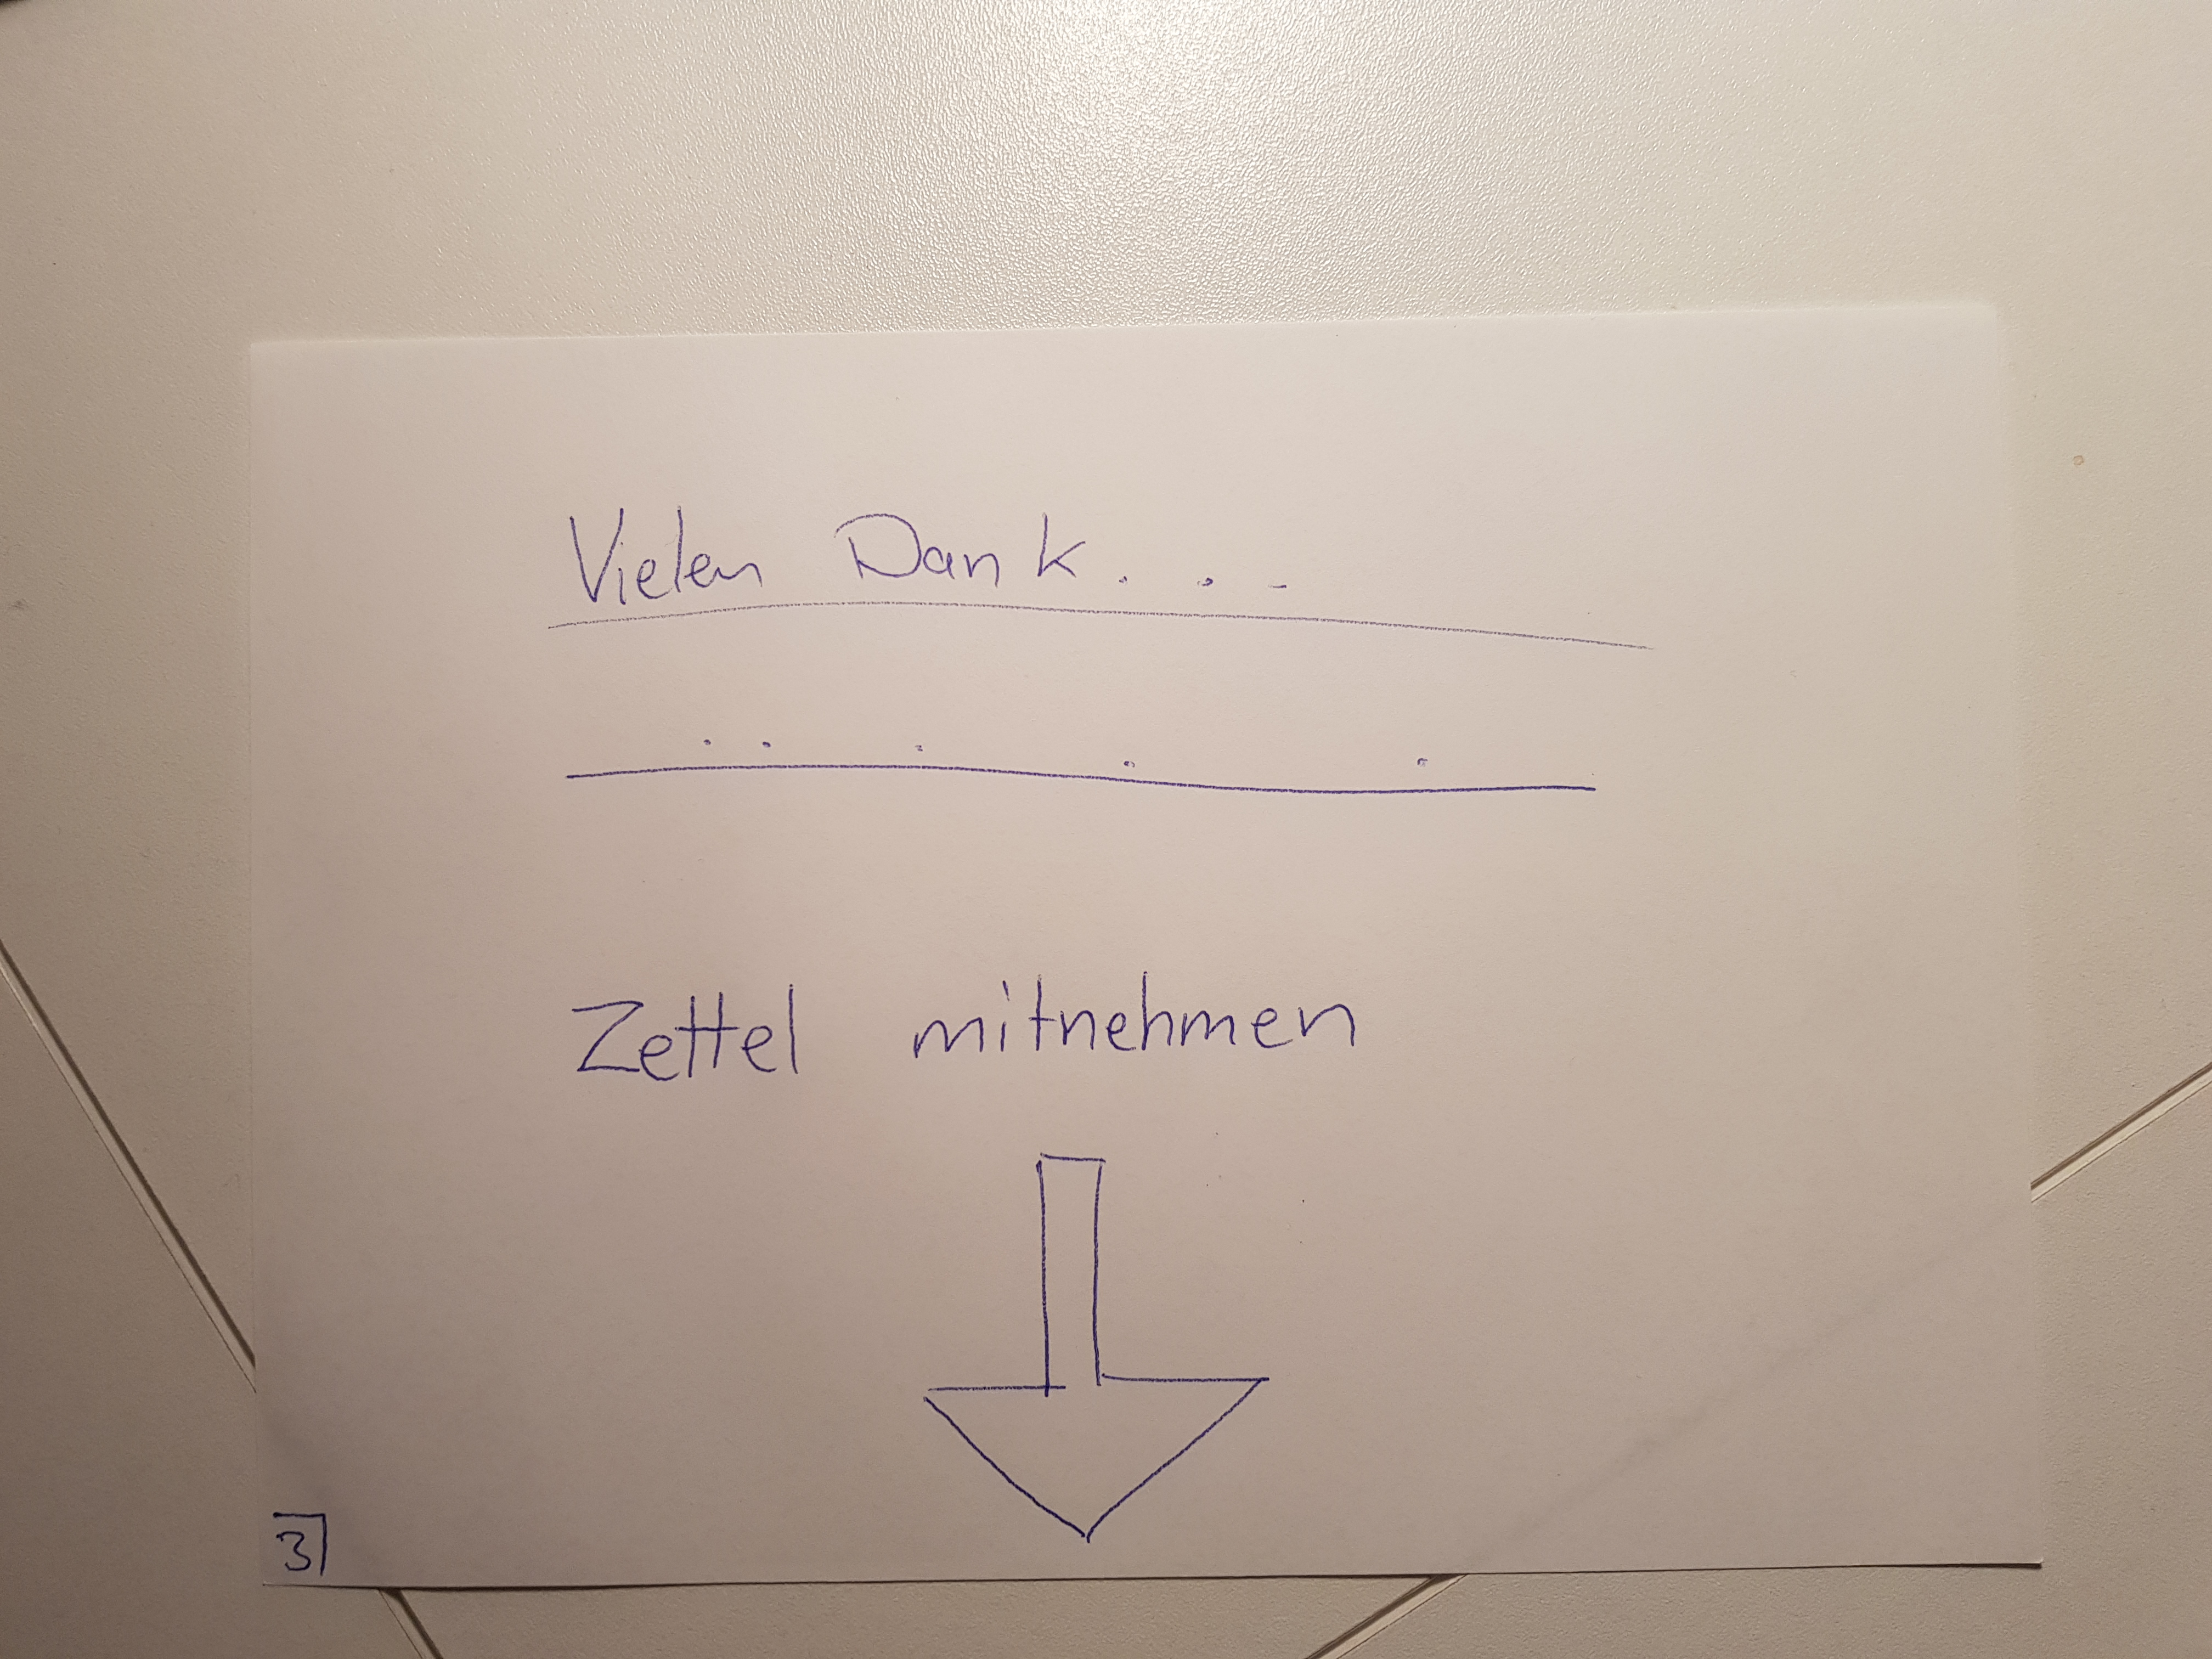 Vielen Dank...
.....
Zettel mitnehmen
3